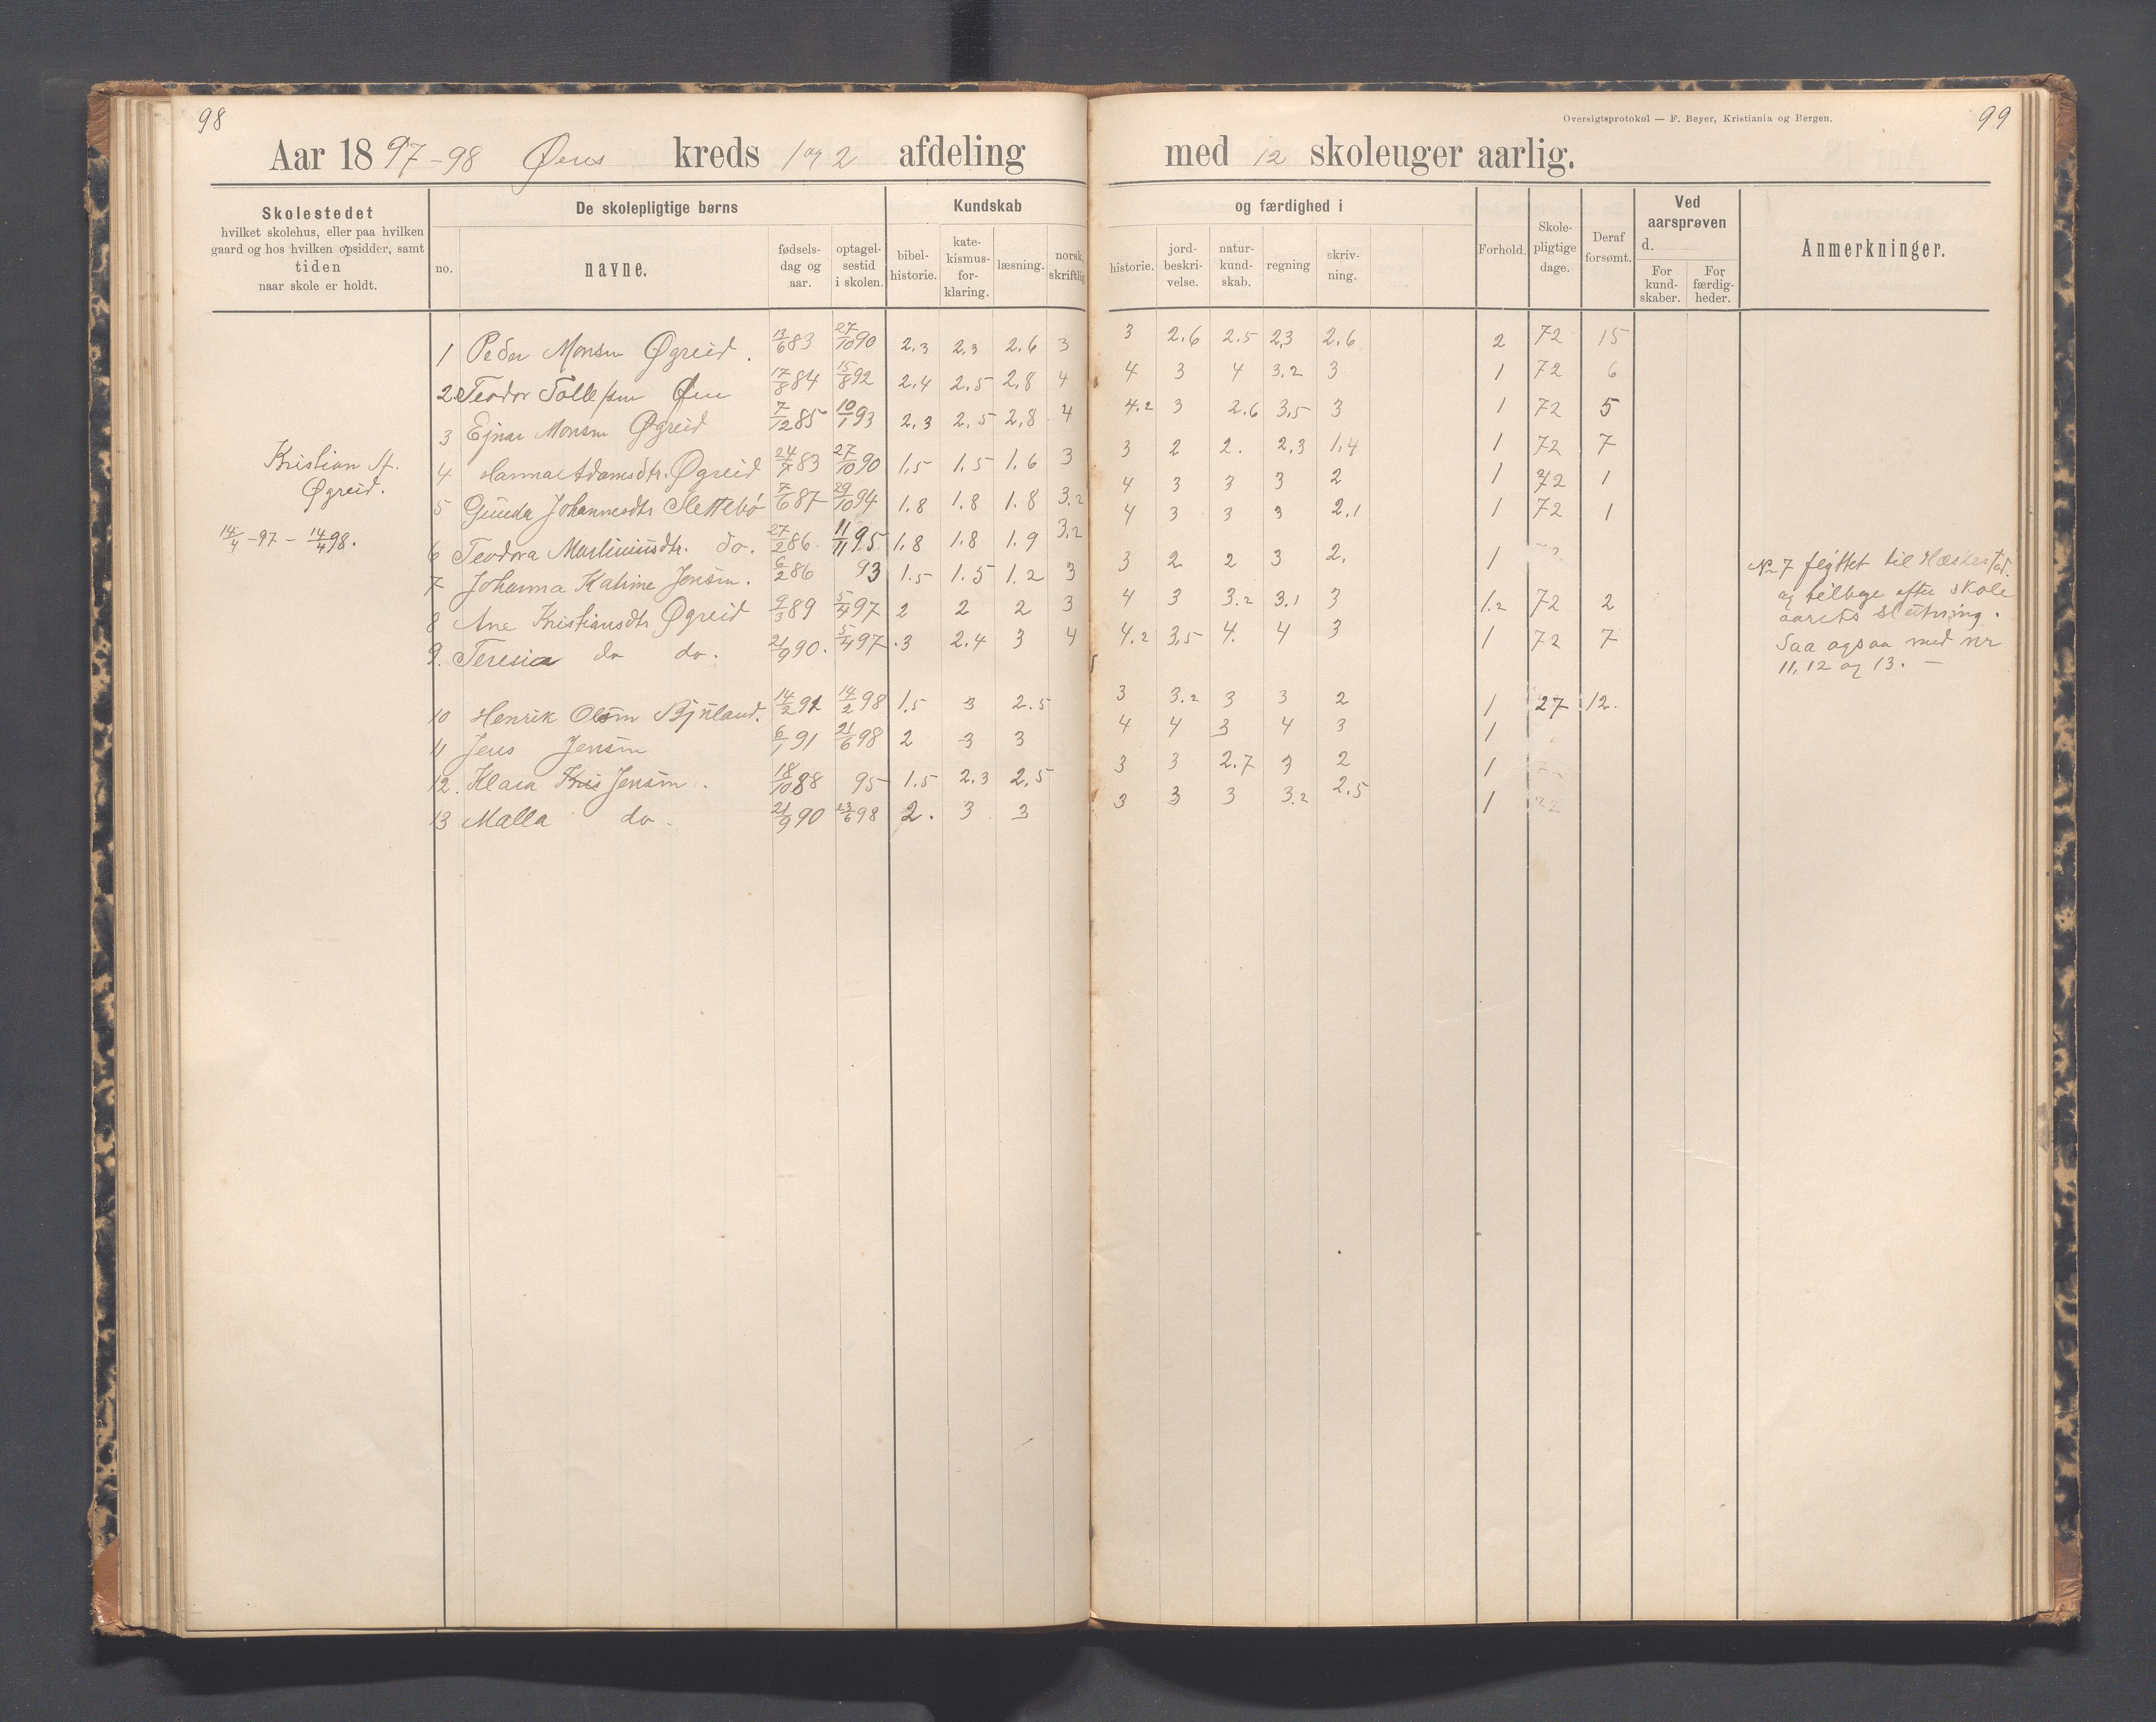 98
Oversigtsprotokol — F. Beyer, Kristiania og Bergen.
99
Aar 1897-98 Øens kreds 1 og 2 afdeling med 12 skoleuger aarlig.
Skolestedet
hvilket skolehus, eller paa hvilken
gaard og hos hvilken opsidder, samt
tiden
naar skole er holdt.
De skolepligtige børns
no.
navne.
fødsels-
dag og
aar.
optagel-
sestid
i skolen.
Kundskab
bibel-
historie.
kate-
kismus-
for-
klaring.
læsning.
norsk,
skriftlig
og færdighed i
historie.
jord-
beskri-
velse.
natur-
kund-
skab.
regning
skriv-
ning.
Forhold.
Skole-
pligtige
dage.
Deraf
forsømt.
Ved
aarsprøven
d.
For
kund-
skaber.
For
færdig-
heder.
Anmerkninger.
Kristian
Øgreid.
14/4 -97 - 14/4 98.
1 Peder Monsen Øgreid. 13/6 83 27/10 90 2.3 2.3 2.6 3 3 2.6 2.5 2.3 2.6 2 72 15
2 Teodor Tollefsen Øen 17/8 84 15/8 92 2.4 2.5 2.8 4 4 3 4 3.2 3 1 72 6
3 Ejnar Monsen Øgreid 7/12 85 10/1 93 2.3 2.5 2.8 4 4.2 3 2.6 3.5 3 1 72 5
4 Hanna Adamsdtr. Øgreid 83 27/10 90 1.5 1.5 1.6 3 3 2 2. 2.3 1.4 1 72 7
5 Johannesdtr Slettebø 7/6 87 29/10 94 1.8 1.8 1.8 3.2 4 3 3 3 2 1 72 1
6 Teodora Martiniusdtr. do. 27/2 86. 11/11 95 1.8 1.8 1.9 3.2 4 3 3 3 2.1 1 72 1
7 Johanna Katrine Jensen. 6/2 86 93 1.5 1.5 1.2 3 3 2 2 3 2. 1
8 Ane Kristiansdtr Øgreid 9/3 89 5/4 97 2 2 2 3 4 3 3.2 3.1 3 1.2 72 2
9. Teresia do do. 21/9 90. 5/4 97 3 2.4 3 4 4.2 3.5 4. 4 3 1 72 7
10 Henrik Olsen Bjuland. 14/2 91 14/2 98 1.5 3 2.5 3 3.2 3 3 2 1 27 12.
11 Jens Jensen 6/1 91 21/6 98 2 3 3 4 4 3 4 3 1
12. Klara Kris Jensen. 18/10 88 95 1.5 2.3 2.5 3 3 2.7 3 2 1
13 Malla do. 21/9 90 23/6 98 2. 3 3 3 3 3 3.2 2.5 1 72
No 7 flyttet til Hæskestad.
og tilbage efter skole
aarets slutning.
Saa ogsaa med nr
11, 12 og 13. —